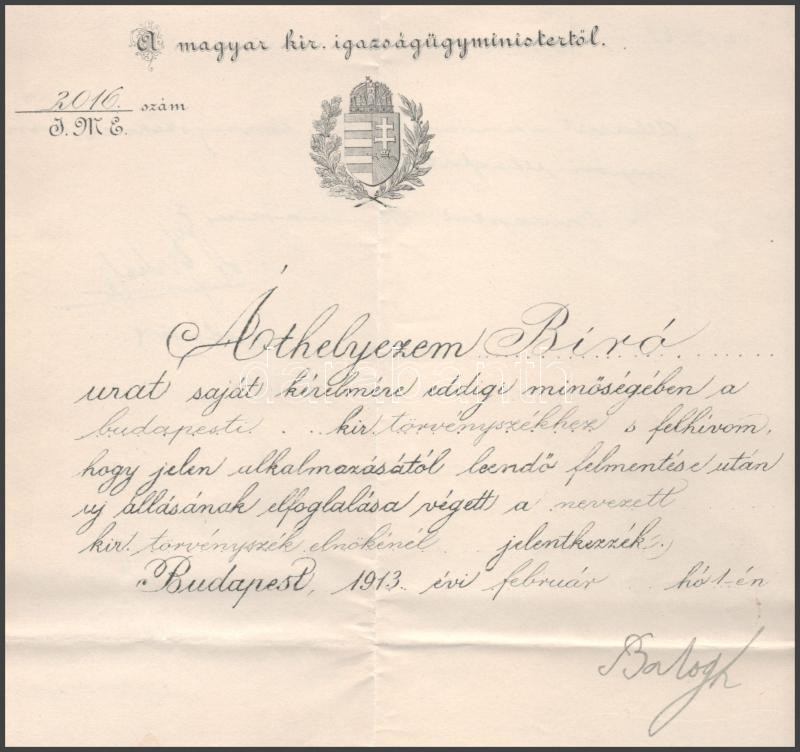 A magyar kir. igazságügyministertől.
2016. szám
I. M. E.
Áthelyezem Biró
urat saját kérelmére eddigi minőségében a
budapesti kir. törvényszékhez s felhivom,
hogy jelen alkalmazásától leendő felmentése után
uj állásának elfoglalása végett a nevezett
kir. törvényszék elnökénél jelentkezzék.
Budapest, 1913. évi február hó 1-én
Balogh